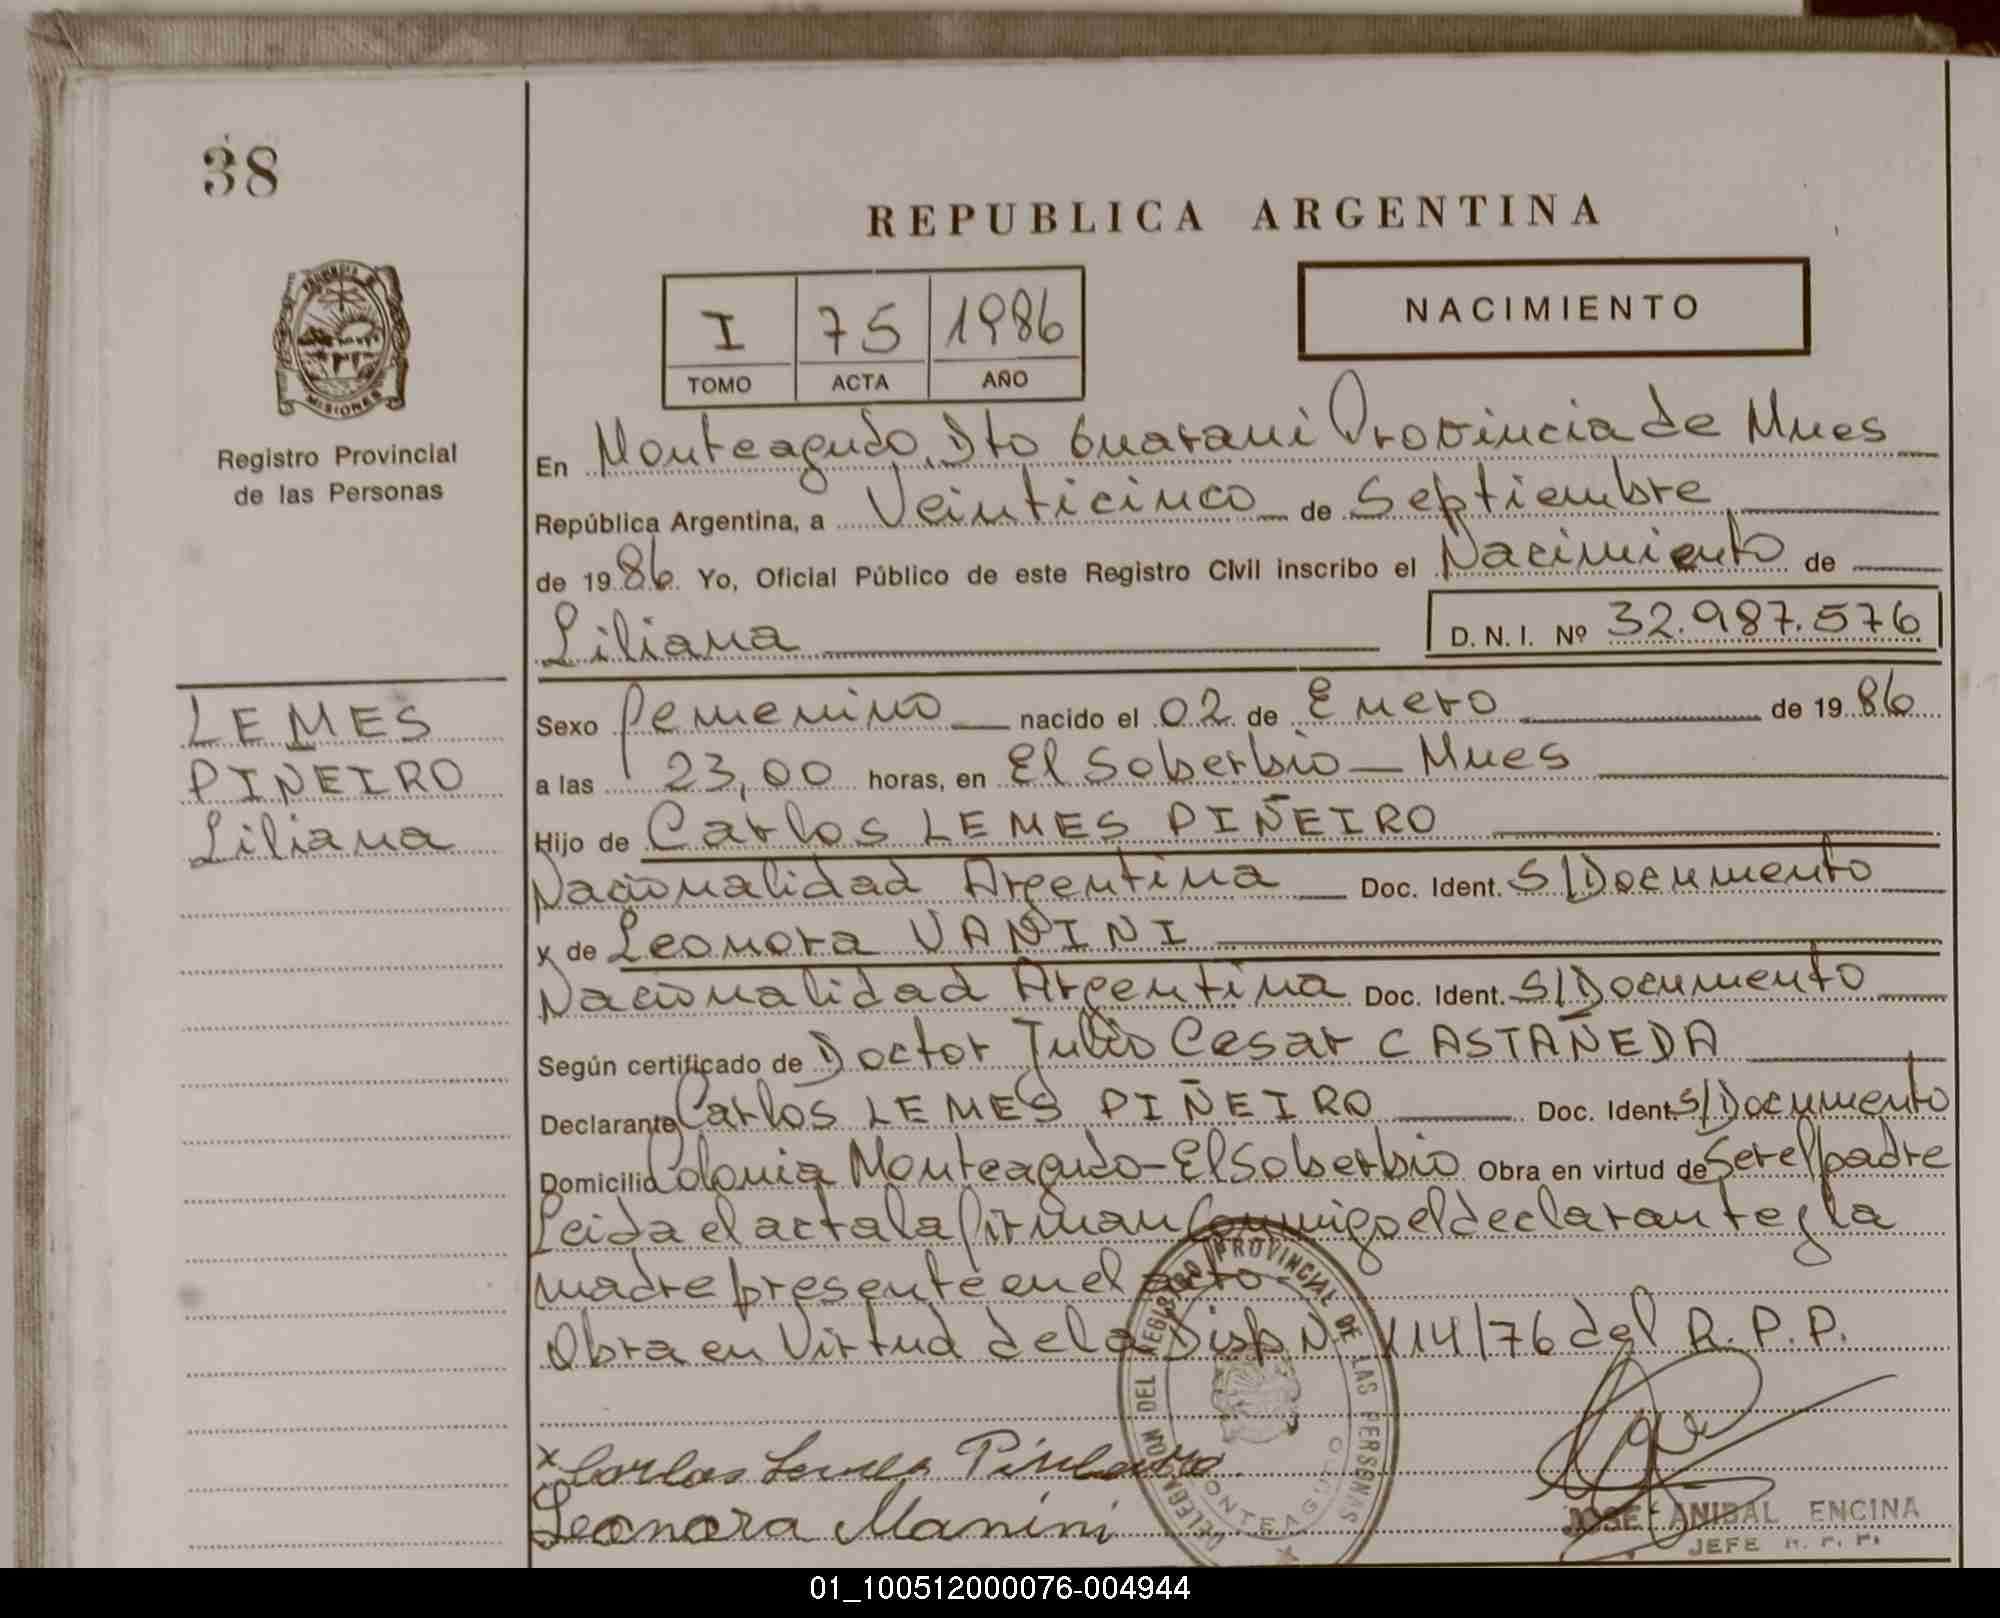 38
REPUBLICA ARGENTINA
PROVINCIA DE
MISIONES
Registro Provincial
de las Personas
I 75 1986
TOMO ACTA AÑO
NACIMIENTO
En Monteagudo, Dto Guarani Provincia de Mnes
República Argentina, a Veinticinco de Septiembre
de 1986. Yo, Oficial Público de este Registro Civil inscribo el Nacimiento de
Liliana D. N. I. Nº 32.987.576
LEMES
PIÑEIRO
Liliana
Sexo Femenino nacido el 02 de Enero de 1986
a las 23,00 horas, en El Soberbio - Mnes
Hijo de Carlos LEMES PIÑEIRO
Nacionalidad Argentina Doc. Ident. S/Documento
y de Leonora VANINI
Nacionalidad Argentina Doc. Ident. S/Documento
Según certificado de Doctor Julio Cesar CASTAÑEDA
Declarante Carlos LEMES PIÑEIRO Doc. Ident. S/Documento
Domicilio Colonia Monteagudo - El Soberbio Obra en virtud de Ser el padre
Leida el acta la firman Conmigo el declarante y la
madre presente en el acto -
Obra en Virtud de la Disp Nº 114/76 del R.P.P.
x Carlos Lemes Piñeiro
Leonora Manini
DELEGACION DEL REGISTRO PROVINCIAL DE LAS PERSONAS
MONTEAGUDO
JOSE ANIBAL ENCINA
JEFE R. P. P.
01_100512000076-004944